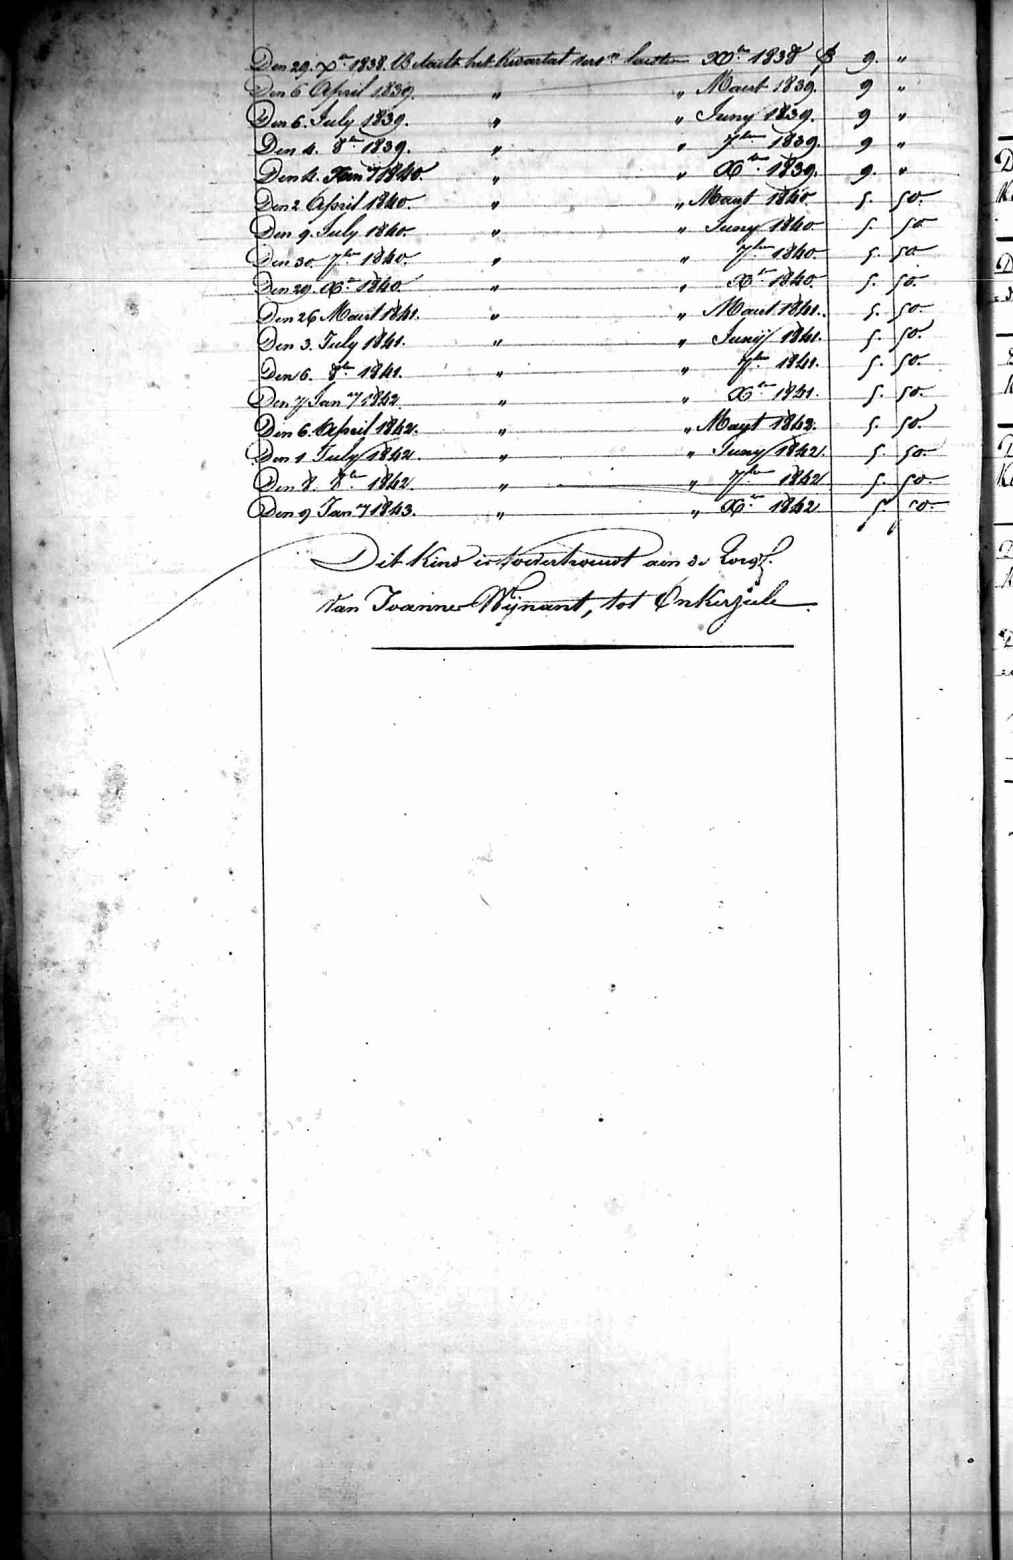 Den 29. Xber 1838. Betaelt het Kwartal verst laesten Xber 1838 9. "
Den 6 April 1839. " " Maert 1839. 9 "
Den 6. July 1839. " " Juny 1839. 9 "
Den 4. 8ber 1839. " " 7ber 1839. 9 "
Den 4. Jany 1840. " " Xber 1839. 9. "
Den 2 April 1840. " " Maert 1840. 5. 50.
Den 9. July 1840 " " Juny 1840. 5. 50
Den 30. 7ber 1840. " " 7ber 1840. 5. 50
Den 29. Xber 1840. " " Xber 1840. 5. 50.
Den 26 Maert 1841. " " Maert 1841. 5. 50.
Den 3. July 1841. " " Junij 1841. 5. 50.
Den 6. 8ber 1841. " " 7ber 1841. 5. 50.
Den 7 Jany 1842 " " Xber 1841. 5. 50.
Den 6. April 1842. " " Maert 1842. 5. 50.
Den 1 July 1842. " " Juny 1842. 5. 50
Den 8. 8ber 1842. " " 7ber 1842 5. 50.
Den 9 Jany 1843. " " Xber 1842 5. 50.
Dit Kind is toevertrouwt aen de zorg
van Joannes Wijnant, tot Onkerzele.